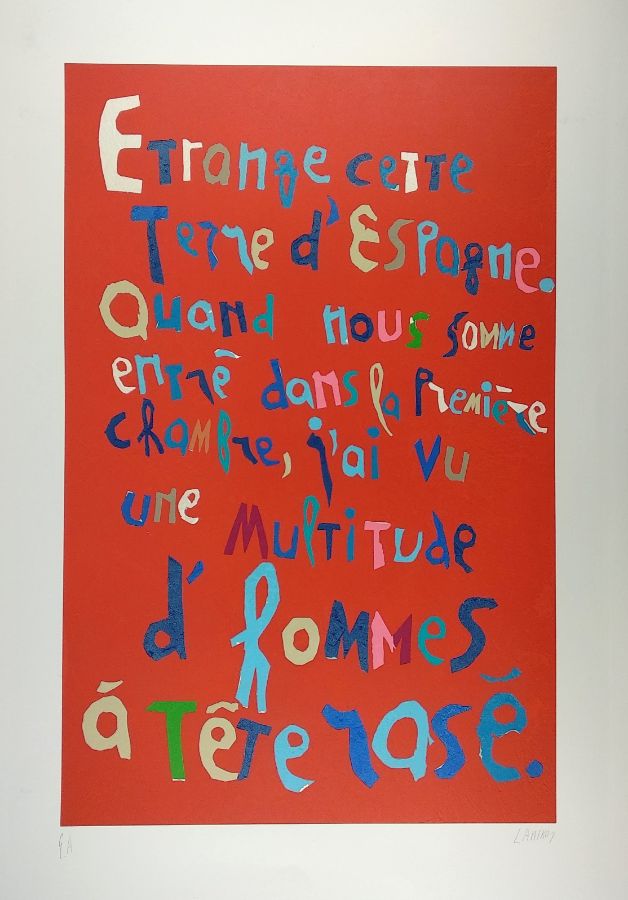 Etrange cette
Terre d'Espagne.
Quand nous somme
entrê dans la Première
chambre, j'ai vu
une Multitude
d'hommes
á Tête rasé.
E A
LANSKOY